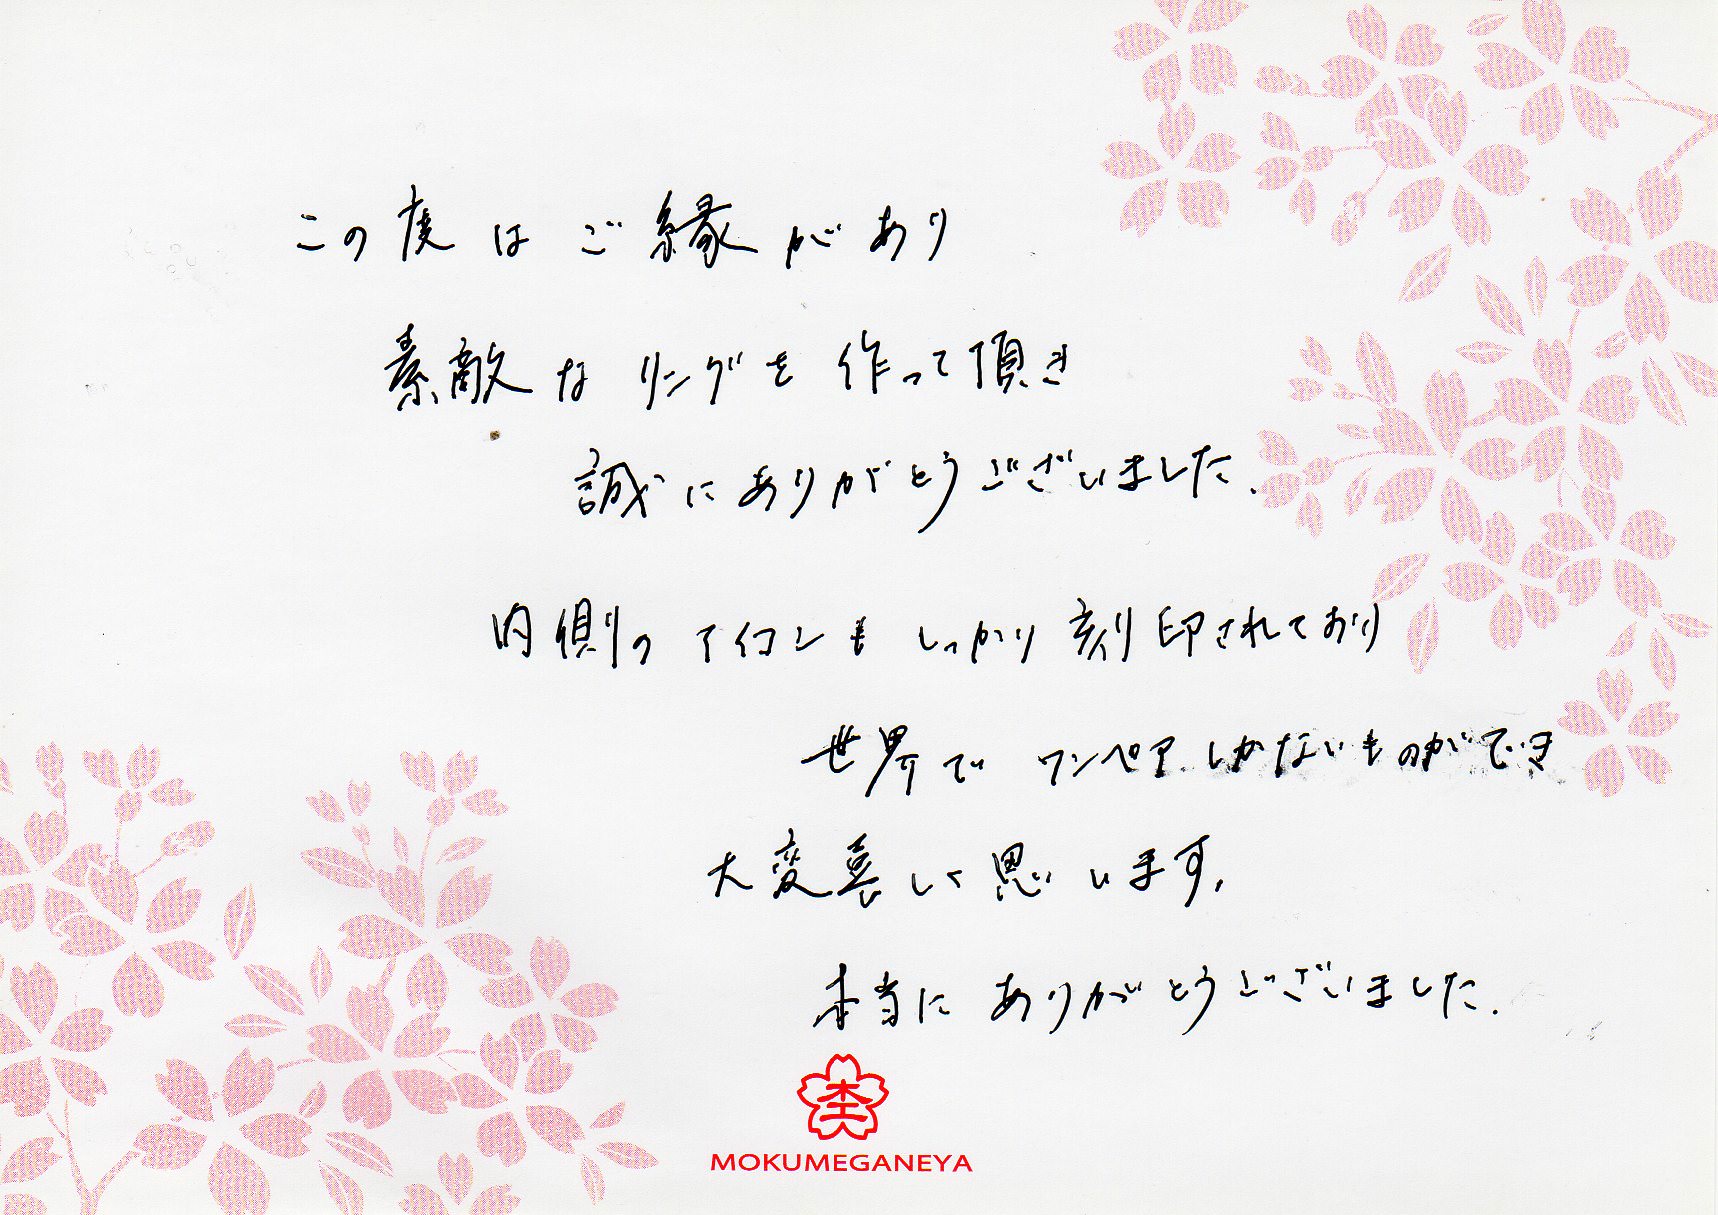 この度はご縁があり
素敵なリングを作って頂き
誠にありがとうございました.
内側のアイコンもしっかり刻印されており
世界でワンペアしかないものができ
大変喜しく思います.
本当にありがとうございました.
MOKUMEGANEYA